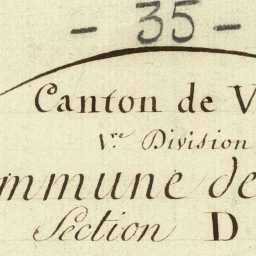 - 35 -
Canton de V
V.re Division
mmune de
Section D